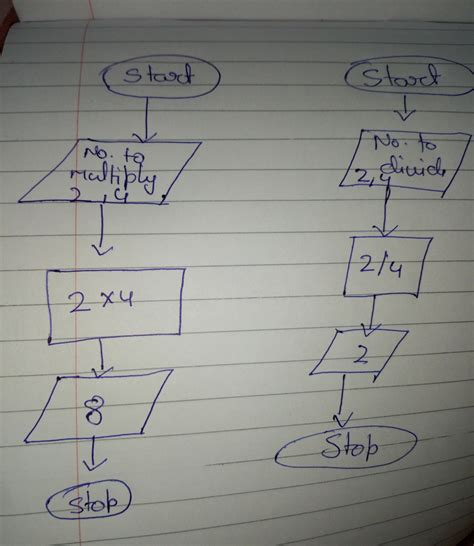 Start
No. to
multiply
2, 4
2 × 4
8
Stop
Start
No. to
divide
2,4
2/4
2
Stop